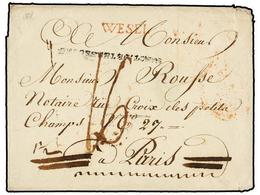 WESEL
Monsieur
Monsieur Rousse
Notaire rue Croix des petits
Champs N° 27.
a Paris